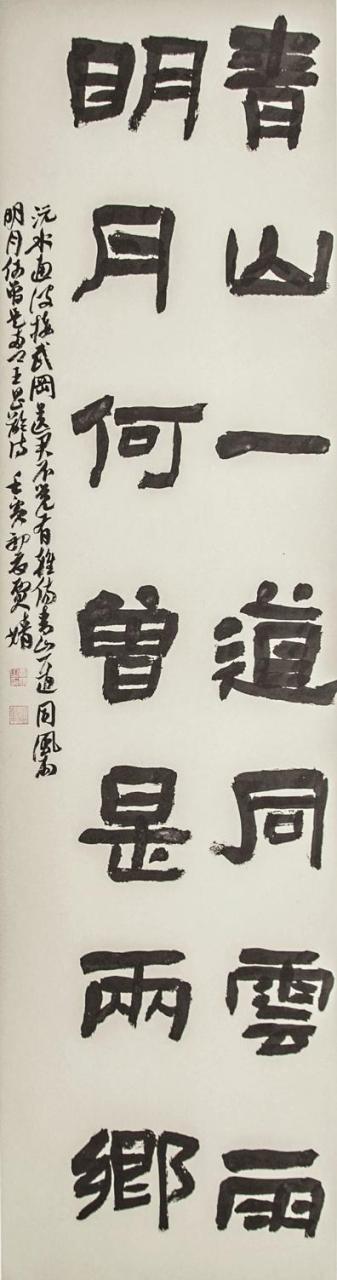 青山一道同雲雨
明月何曾是兩鄉
沅水通波接武岡送君不覺有離傷青山一道同風雨
明月何曾是兩鄉王昌齡詩 壬寅初春賈婧